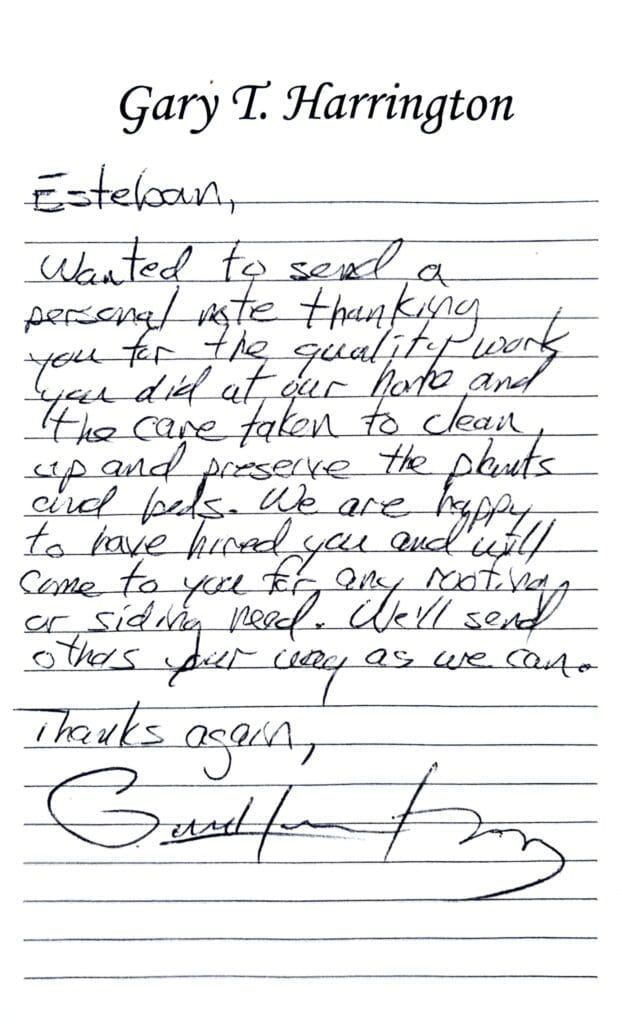 Gary T. Harrington
Esteban,
Wanted to send a
personal note thanking
you for the quality work
you did at our home and
the care taken to clean
up and preserve the plants
and beds. We are happy
to have hired you and will
come to you for any roofing
or siding need. We'll send
others your way as we can.
Thanks again,